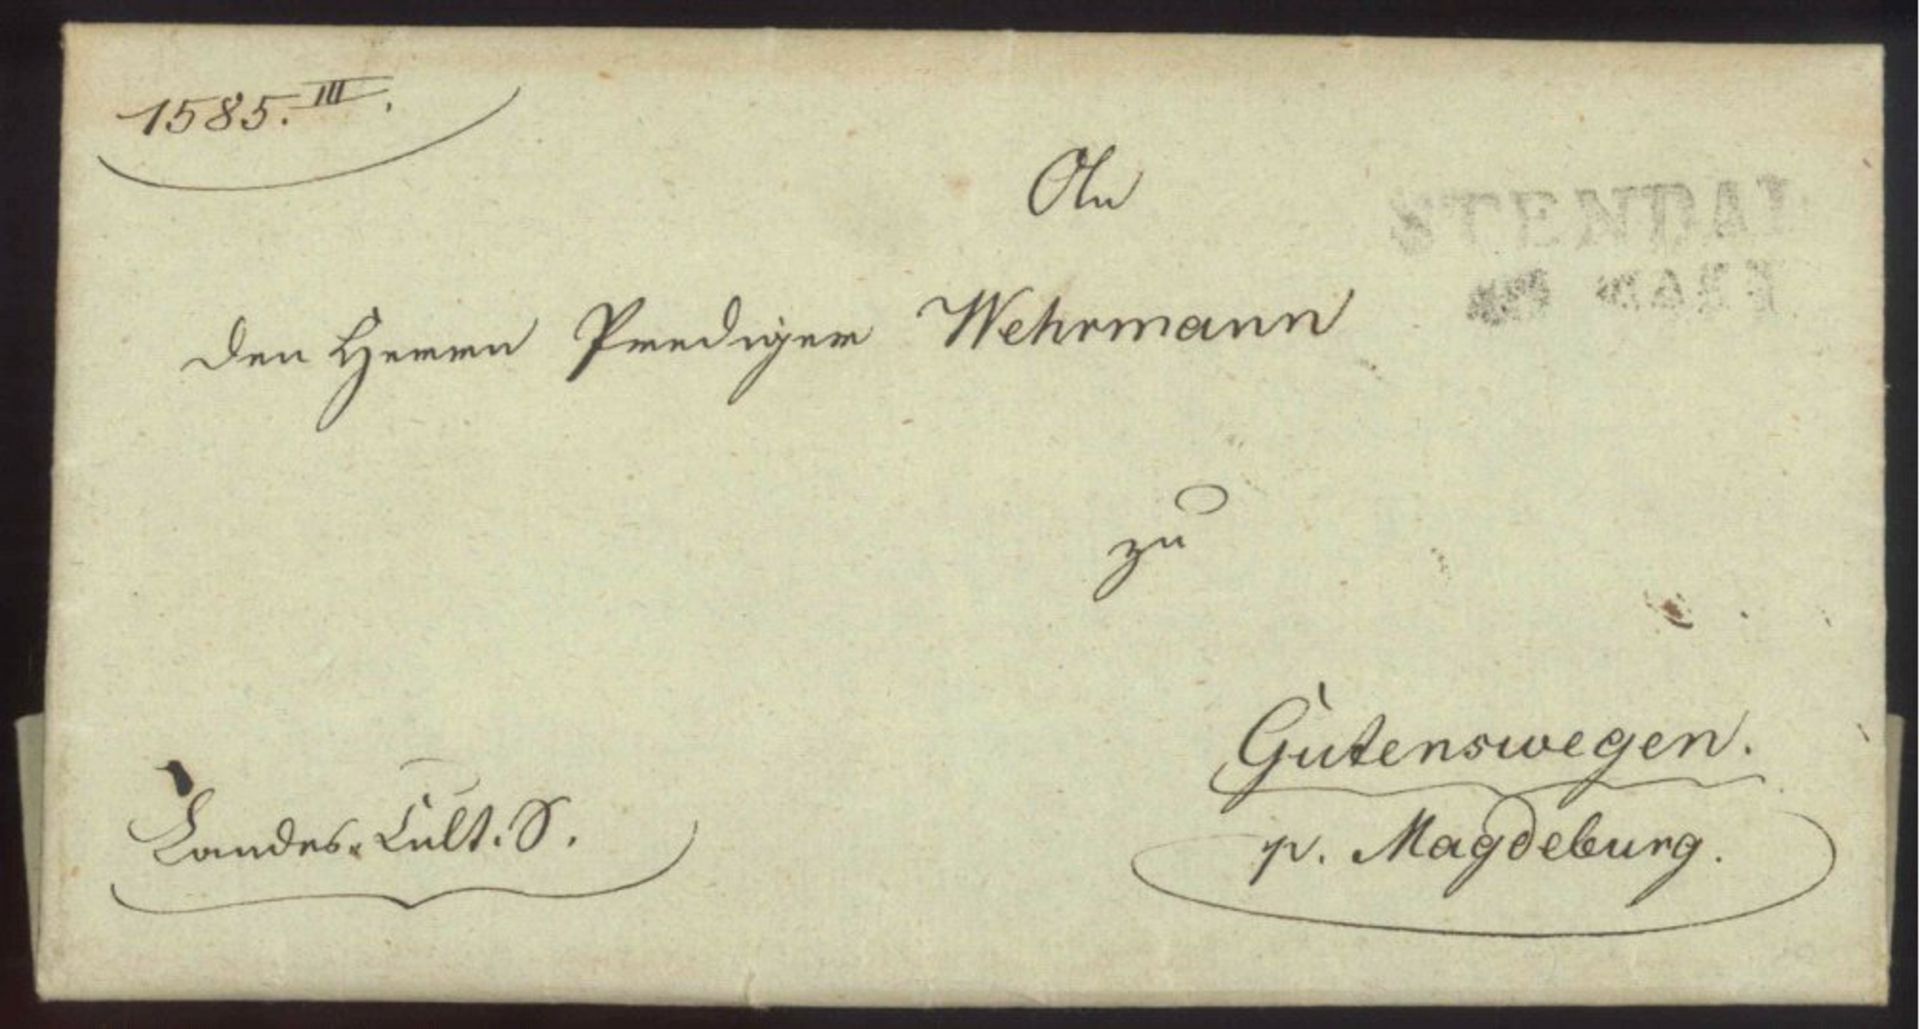 1585. III.
An
STENDAL
MÄRZ
den Herrn Prediger Wehrmann
zu
Gutenswegen.
p. Magdeburg.
Landes-Cult. S.